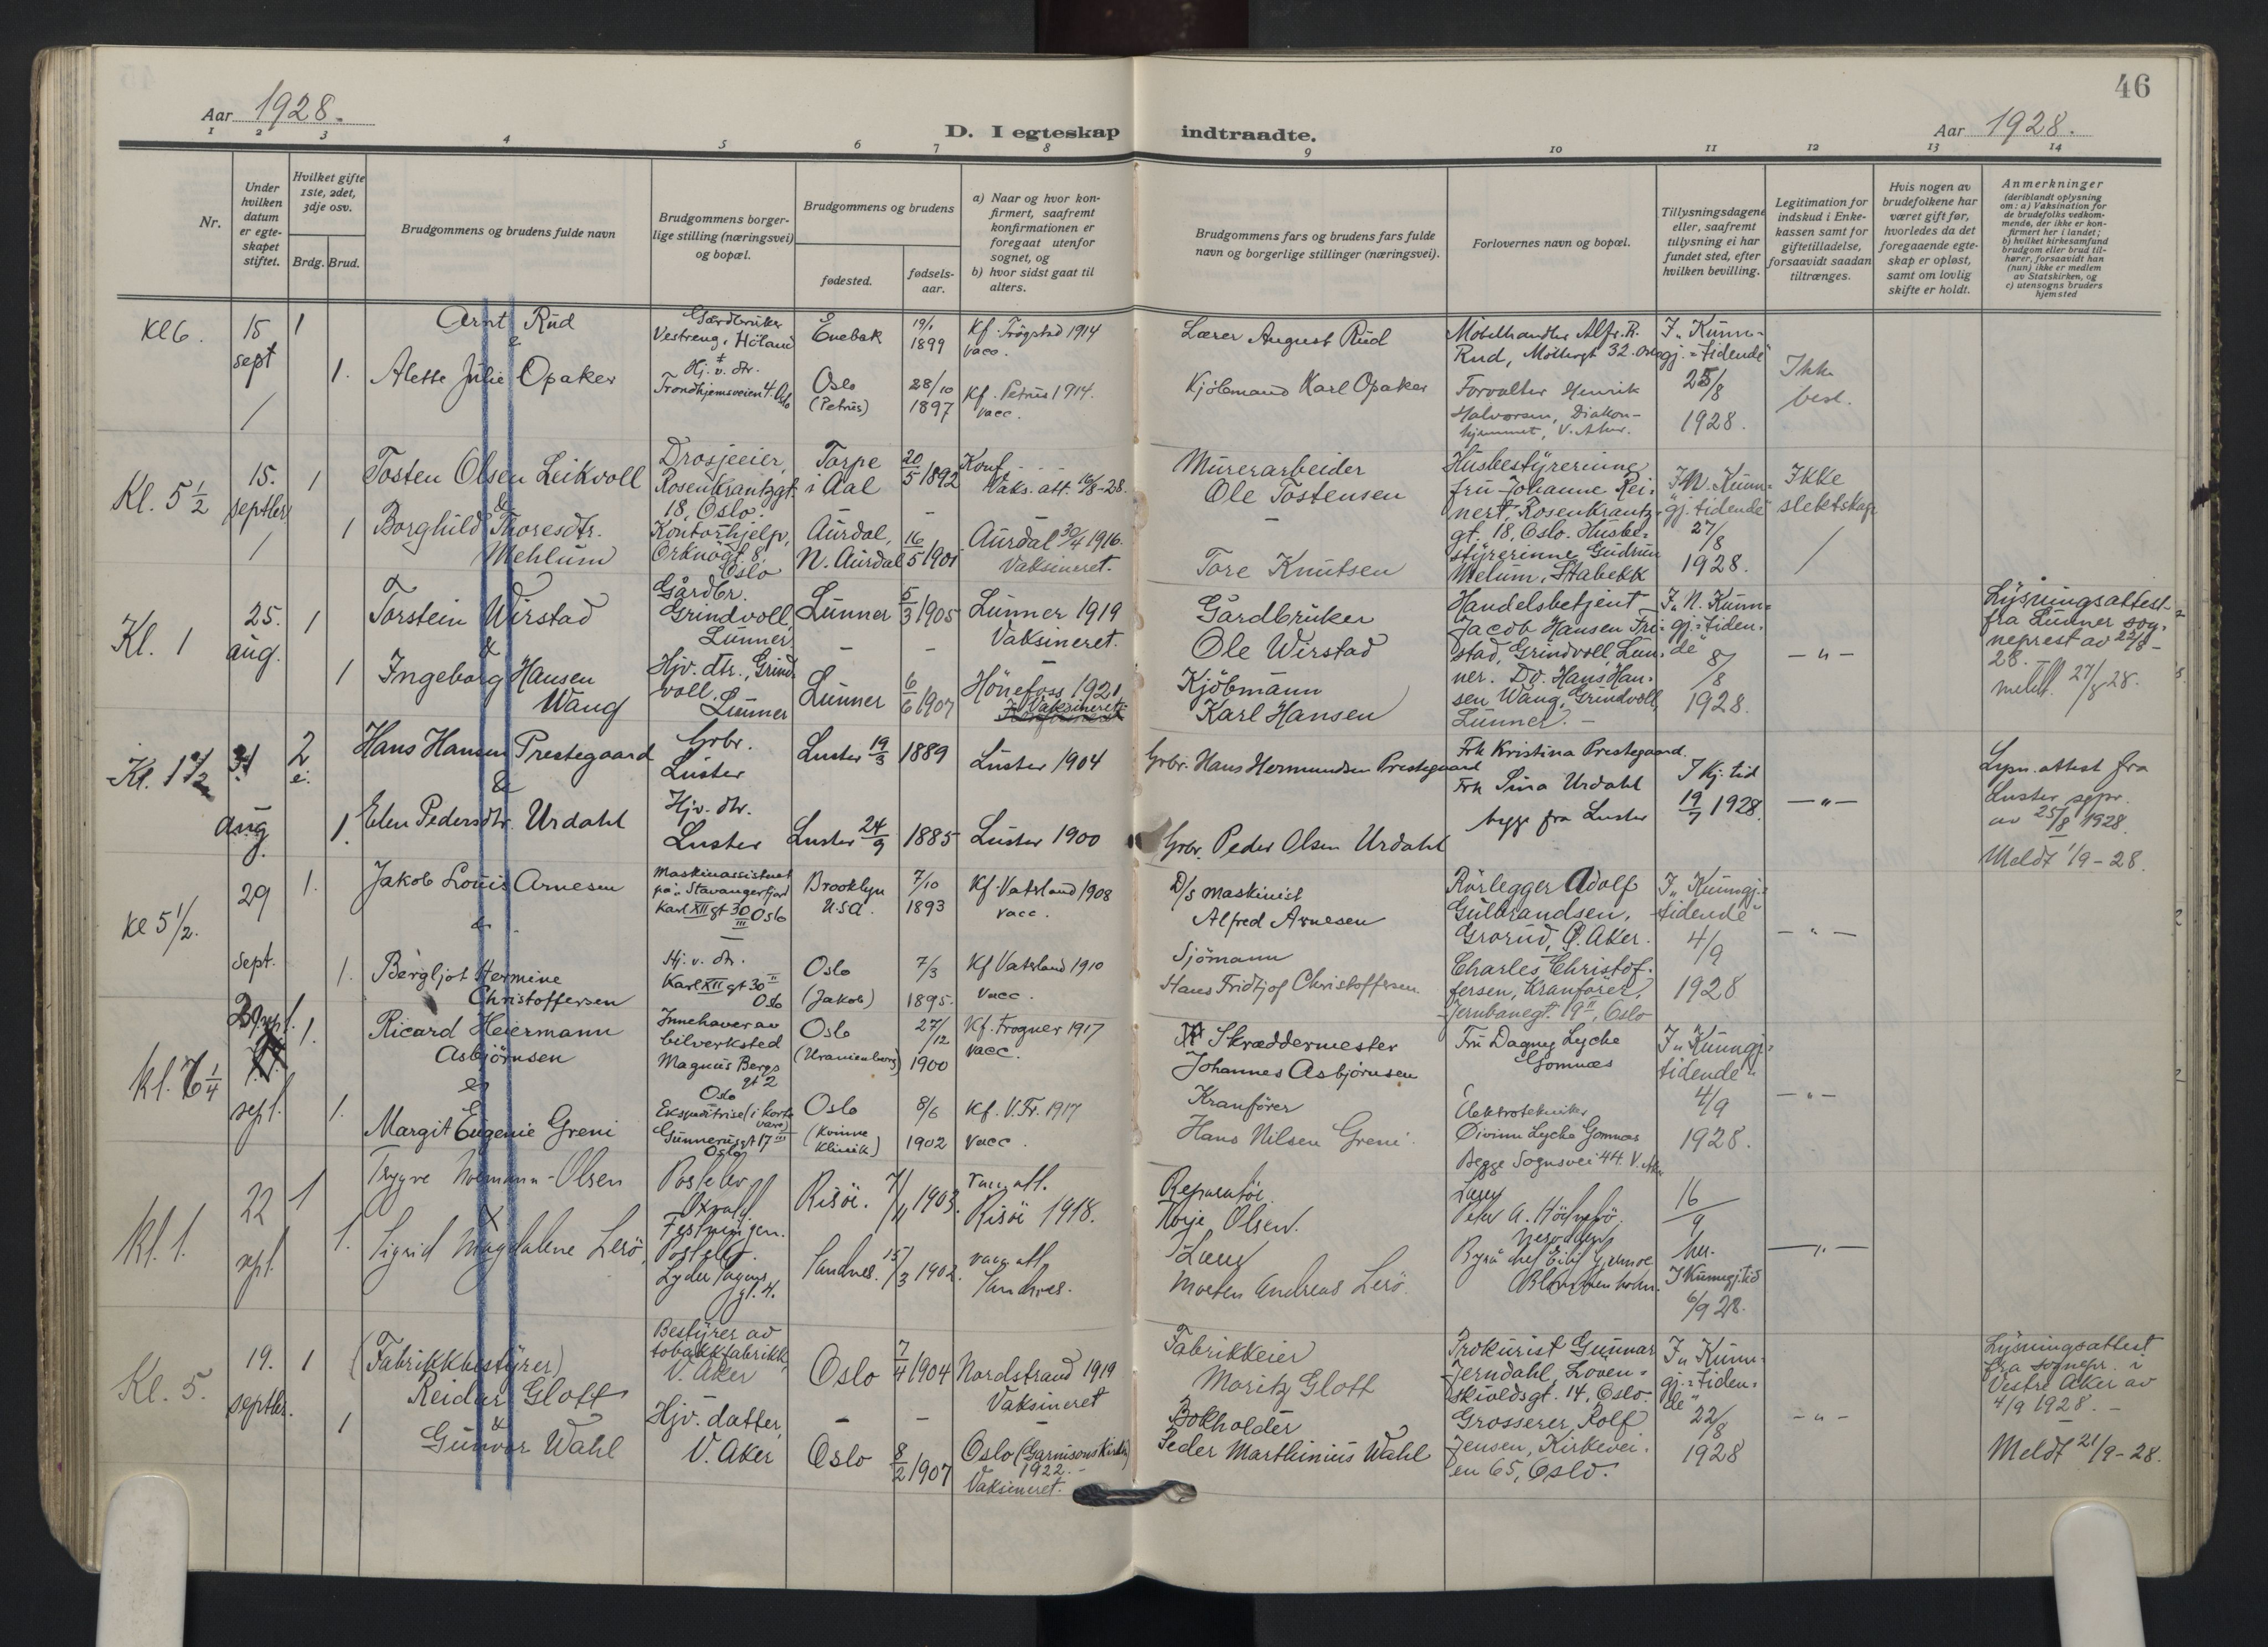 46
Aar 1928.
D. I egteskap indtraadte.
Aar 1928.
1 2 3 4 5 6 7 8 9 10 11 12 13 14
Nr.
Under hvilken datum er egteskapet stiftet.
Hvilket gifte 1ste, 2det, 3dje osv.
Brdg. Brud.
Brudgommens og brudens fulde navn
Brudgommens borgerlige stilling (næringsvei) og bopæl.
Brudgommens og brudens
fødested.
fødselsaar.
a) Naar og hvor konfirmert, saafremt konfirmationen er foregaat utenfor sognet, og
b) hvor sidst gaat til alters.
Brudgommens fars og brudens fars fulde navn og borgerlige stillinger (næringsvei).
Forlovernes navn og bopæl.
Tillysningsdagene eller, saafremt tillysning ei har fundet sted, efter hvilken bevilling.
Legitimation for indskud i Enkekassen samt for giftetilladelse, forsaavidt saadan tiltrænges.
Hvis nogen av brudefolkene har været gift før, hvorledes da det foregaaende egteskap er opløst, samt om lovlig skifte er holdt.
Anmerkninger
(deriblandt oplysning om: a) Vaksination for de brudefolks vedkommende, der ikke er konfirmert her i landet;
b) hvilket kirkesamfund brudgom eller brud tilhører, forsaavidt han (hun) ikke er medlem av Statskirken, og
c) utensogns bruders hjemsted
Kl 6.
15 sept
1
Arnt Rud
&
Gardbruker
Vestreng, Höland
Enebak
19/1 1899
Kf. Trögstad 1914
vacc.
Lærer August Rud
Möbelhandler Alfr. R.
Rud, 32. Oslo
I „Kunngj.=tidende"
25/8
1928.
Ikke
besl.
1.
Alette Julie Opaker
Hj. v. dtr.
Trondhjemsveien 4. Oslo
Oslo
(Petrus)
28/10 1897
Kf. Petrus 1914.
vacc.
Kjöbmand Karl Opaker
Forvalter Henrik
Halvorsen, Diakonhjemmet, V. Aker.
Kl. 5 1/2
15. septbr.
1
Tosten Olsen Leikvoll
&
Drosjeeier,
Rosenkrantzgt.
18, Oslo.
Torpe
i Aal
20/5 1892
Konf.
Vaks. att. 16/8-28.
Murerarbeider
Ole Tostensen
Husbestyrerinne
fru Johanne Reinert, Rosenkrantz=
gt. 18, Oslo. Husbe=
styrerinne Gudrun
Melum, Stabekk
I „N. Kunn=
gj. tidende"
27/8
1928.
Ikke
slektskap
1
Borghild Thoresdtr.
Mehlum
Kontorhjelp,
Orknögt. 8,
Oslo
Aurdal,
N. Aurdal
16/5 1901
Aurdal 30/4 1916.
Vaksineret.
Tore Knutsen
Kl. 1
25. aug.
1
Torstein Wirstad
&
Gårdbr.
Grindvoll,
Lunner.
Lunner
5/3 1905
Lunner 1919
Vaksineret.
Gårdbruker
Ole Wirstad
Handelsbetjent
Jacob Hansen Fristad, Grindvoll, Lunner. Do. Hans Hansen Wang, Grindvoll,
Lunner.
I „N. Kunn=
gj.=tiden=
de"
8/8
1928.
— „ —
Lysningsattest
fra Lunner sogneprest av 22/8-
28.
meldt. 27/8 28.
1
Ingeborg Hansen
Wang
Hjv. dtr., Grindvoll.
Lunner
Lunner
6/6 1907
Hönefoss 1921
Vaksineret.
Kjöbmann
Karl Hansen
Kl. 1 1/2
31 aug.
2
Hans Hansen Prestegaard
&
Grbr.
Luster
Luster
19/3 1889
Luster 1904
Grbr. Hans Hermundsen Prestegaard
Frk Kristina Prestegaard
Frk Sina Urdahl
begge fra Luster
I Kj. tid
19/7 1928
— „ —
Lysn. attest fra
Luster sgpr.
av 25/8 1928.
Meldt 1/9-28.
1.
Elen Pedersdtr. Urdahl
Hjv. dtr.
Luster
Luster
24/9 1885
Luster 1900
Grbr. Peder Olsen Urdahl
Kl 5 1/2.
29 sept.
1.
Jakob Louis Arnesen
&
Maskinassistent
på „Stavangerfjord
Karl XII gt 30 III Oslo
Brooklyn
U.S.A.
7/10 1893
Kf. Vaterland 1908
vacc.
D/s maskinist
Alfred Arnesen
Rörlegger Adolf
Gulbrandsen,
Grorud, Ö. Aker.
I „Kunngj.=
tidende"
4/9
1928
— „ —
1.
Bergljot Hermine
Christoffersen
Hj. v. dtr.
Karl XII gt 30 II
Oslo
Oslo
(Jakob)
7/3 1895.
Kf Vaterland 1910
vacc.
Sjömann
Hans Fridtjof Christoffersen
Charles Christoffersen, Kranförer,
Jernbanegt. 19 II, Oslo
Kl. 6 1/4
sept.
1.
Ricard Heiermann
Asbjörnsen
&
Innehaver av
bilverksted
Magnus Bergs
gt 2
Oslo
Oslo
(Uranienborg)
27/12 1900
Kf. Frogner 1917
vacc.
Skræddermester
Johannes Asbjörnsen
Fru Dagny Lyche
Gomnæs
I „Kunngj=
tidende"
4/9
1928.
— „ —
1.
Margit Eugenie Greni
Ekspeditrise (i kortevare)
Gunnerusgt 17 III
Oslo
Oslo
(Kvinne
klinik)
8/6 1902
Kf. V. Fr. 1917
vacc.
Kranförer
Hans Nilsen Greni
Elektrotekniker
Öivinn Lyche Gomnæs
Begge Sognsvei 44. V. Aker
Kl. 1.
22 sept.
1
Trygve -Olsen
&
Festningen.
Risör.
7/11 1903.
vacc. att.
Risör 1918.
Reparatör
Olsen.
Lærer
16/9
her.
I Kunngj.tid
6/9 28.
— „ —
1.
Sigrid Magdalene Lerö
Lyder Sagens
gt. 4.
Sandnes.
15/3 1902.
vacc. att
Sandnes.
Lærer
Morten Andreas Lerö.
Kl. 5.
19. septbr.
1
(Fabrikkbestyrer)
Reidar Glott
&
Bestyrer av
tobakkfabrikk,
V. Aker
Oslo
7/4 1904
Nordstrand 1919
Vaksineret
Fabrikkeier
Moritz Glott
Prokurist Gunnar
Jerndahl, Löven=
skioldsgt. 14, Oslo.
Grosserer Rolf
Jensen, Kirkevei=
en 65, Oslo.
I „Kunn=
gj.=tiden=
de"
22/8
1928
— „ —
Lysningsattest
fra sognepr. i
Vestre Aker av
4/9 1928. —
Meldt 21/9-28.
1
Gunvor Wahl
Hjv. datter,
V. Aker
Oslo
8/2 1907
Oslo (Garnisonskirken)
1922.
Vaksineret.
Bokholder
Peder Marthinius Wahl